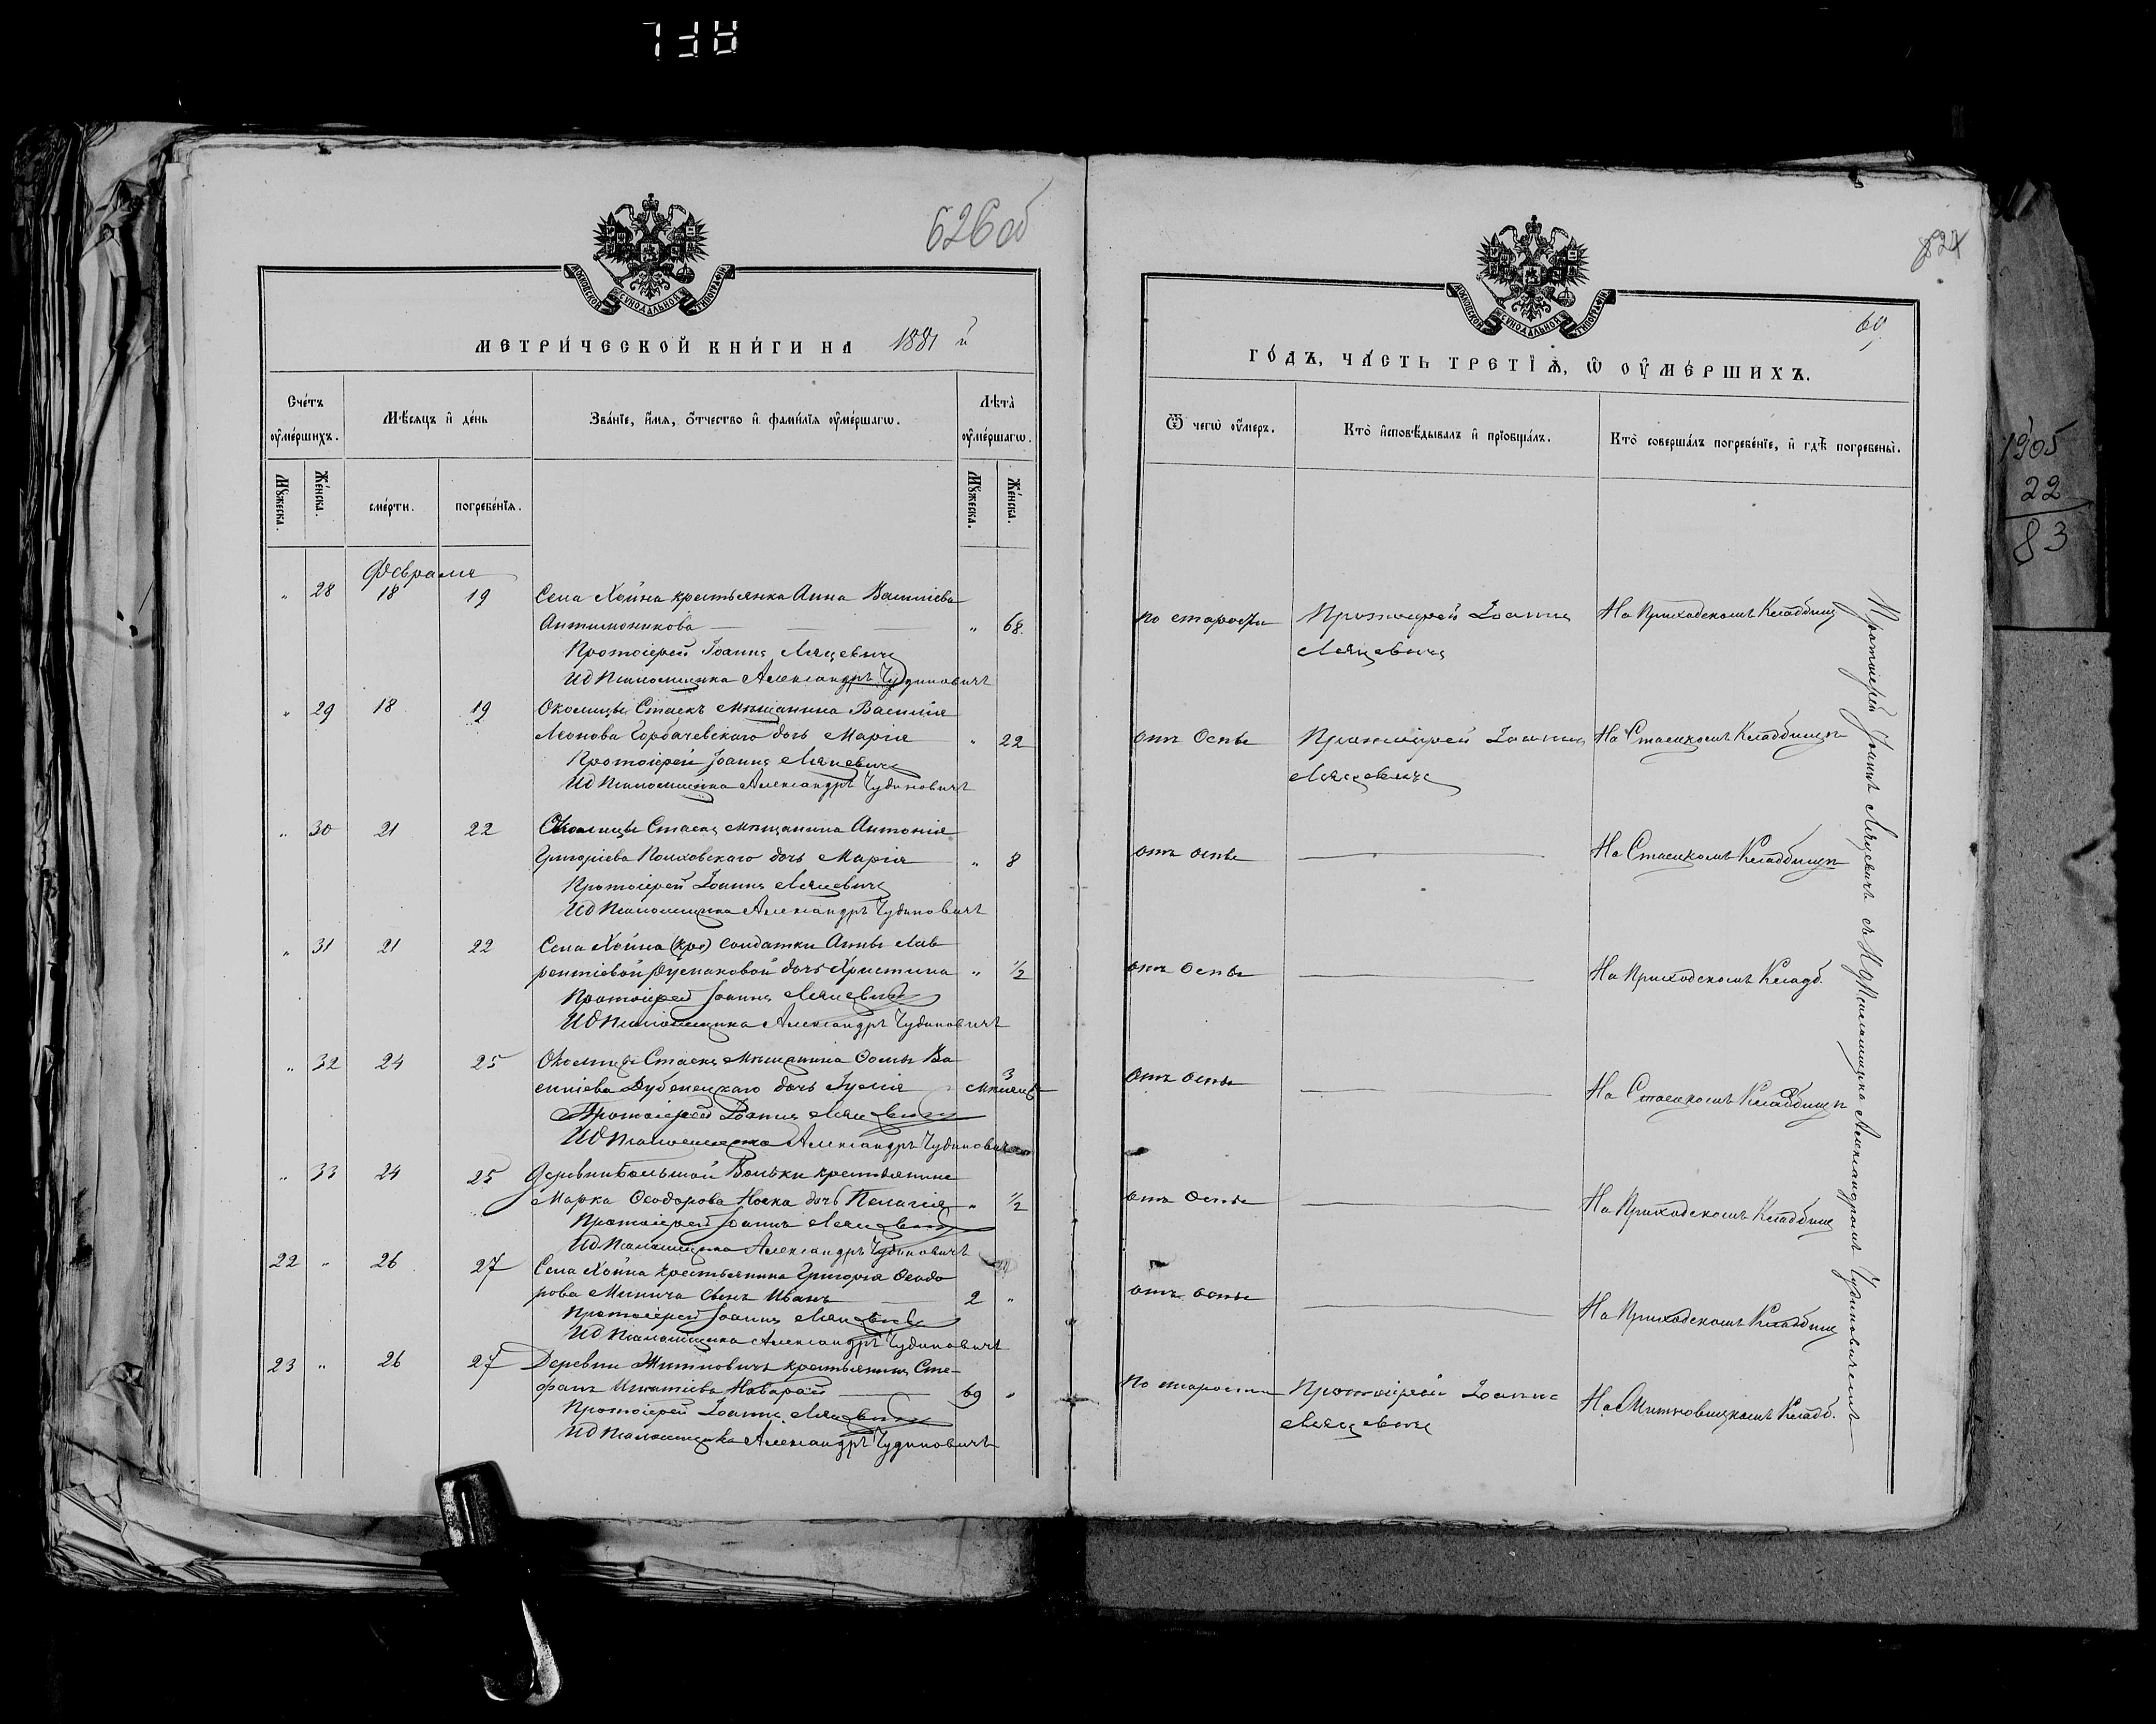 626 об
МОСКОВСКОЙ СѴНОДАЛЬНОЙ ТИПОГРАФІИ
МЕТРИ́ЧЕСКОЙ КНИ́ГИ НА 1881 й
Сче́тъ ᲂу҆ме́ршихъ.
Мѣ́сяцъ и҆ де́нь
Зва́нїе, и҆́мя, ѻ҆́тчество и҆ фами́лїя ᲂу҆ме́ршагѡ.
Лѣта̀ ᲂу҆ме́ршагѡ.
Му́жеска.
Же́нска
сме́рти.
погребе́нїя.
Му́жеска.
Же́нска.
Февраля
" 28 18 19 Села Хойна крестьянка Анна Василіева
Антимоникова " 68.
Протоіерей Іоаннъ Ляцевичъ
ИД Псаломщика Александръ Чудиновичъ
" 29 18 19 Околицы Стаекъ мѣщанина Василія
Леонова Горбачевскаго дочь Марія " 22
Протоіерей Іоаннъ Ляцевичъ
ИД Псаломщика Александръ Чудиновичъ
" 30 21 22 Околицы Стаекъ мѣщанина Антонія
Григоріева Полховскаго дочь Марія " 8
Протоіерей Іоаннъ Ляцевичъ
ИД Псаломщика Александръ Чудиновичъ
" 31 21 22 Села Хойна (кре) солдатки Анны Лав
рентіевой дочь Христина " 1/2
Протоіерей Іоаннъ Ляцевичъ
ИД Псаломщика Александръ Чудиновичъ
" 32 24 25 Околицы Стаекъ мѣщанина Ѳомы Ва
силіева Дубенецкаго дочь Іулія 3 мѣсяц
Протоіерей Іоаннъ Ляцевичъ
ИД Псаломщика Александръ Чудиновичъ
" 33 24 25 Деревни Большой Вольки крестьянина
Марка Ѳеодорова Носка дочь Пелагія " 1/2
Протоіерей Іоаннъ Ляцевичъ
ИД Псаломщика Александръ Чудиновичъ
22 " 26 27 Села Хойна крестьянина Григорія Ѳеодо
рова Минича сынъ Иванъ 2 "
Протоіерей Іоаннъ Ляцевичъ
ИД Псаломщика Александръ Чудиновичъ
23 " 26 27 Деревни крестьянинъ Сте-
фанъ Игнатіевъ 69 "
Протоіерей Іоаннъ Ляцевичъ
ИД Псаломщика Александръ Чудиновичъ
627
69
МОСКОВСКОЙ СѴНОДАЛЬНОЙ ТИПОГРАФІИ
ГО́ДЪ, ЧА́СТЬ ТРЕ́ТЇѦ, Ѡ҆ ОУ҆МЕ́РШИХЪ.
Ѿ чегѡ̀ ᲂу҆́меръ.
Кто̀ и҆сповѣ́дывалъ и҆ прїобща́лъ.
Кто̀ соверша́лъ погребе́нїе, и҆ гдѣ̀ погребены̀.
по старости Протоіерей Іоаннъ На Приходскомъ Кладбищ
Ляцевичъ
отъ оспы Протоіерей Іоаннъ На Стаецкомъ Кладбищѣ
Ляцевичъ
отъ оспы На Стаецкомъ Кладбищѣ
отъ оспы На Приходскомъ Кладб.
отъ оспы На Стаецкомъ Кладбищѣ
отъ оспы На Приходскомъ Кладбищ
отъ оспы На Приходскомъ Кладбищ
по старости Протоіерей Іоаннъ Кладб.
Ляцевичъ
Протоіерей Іоаннъ Ляцевичъ съ И Д Псаломщика Александромъ Чудиновичемъ
1905
22
83